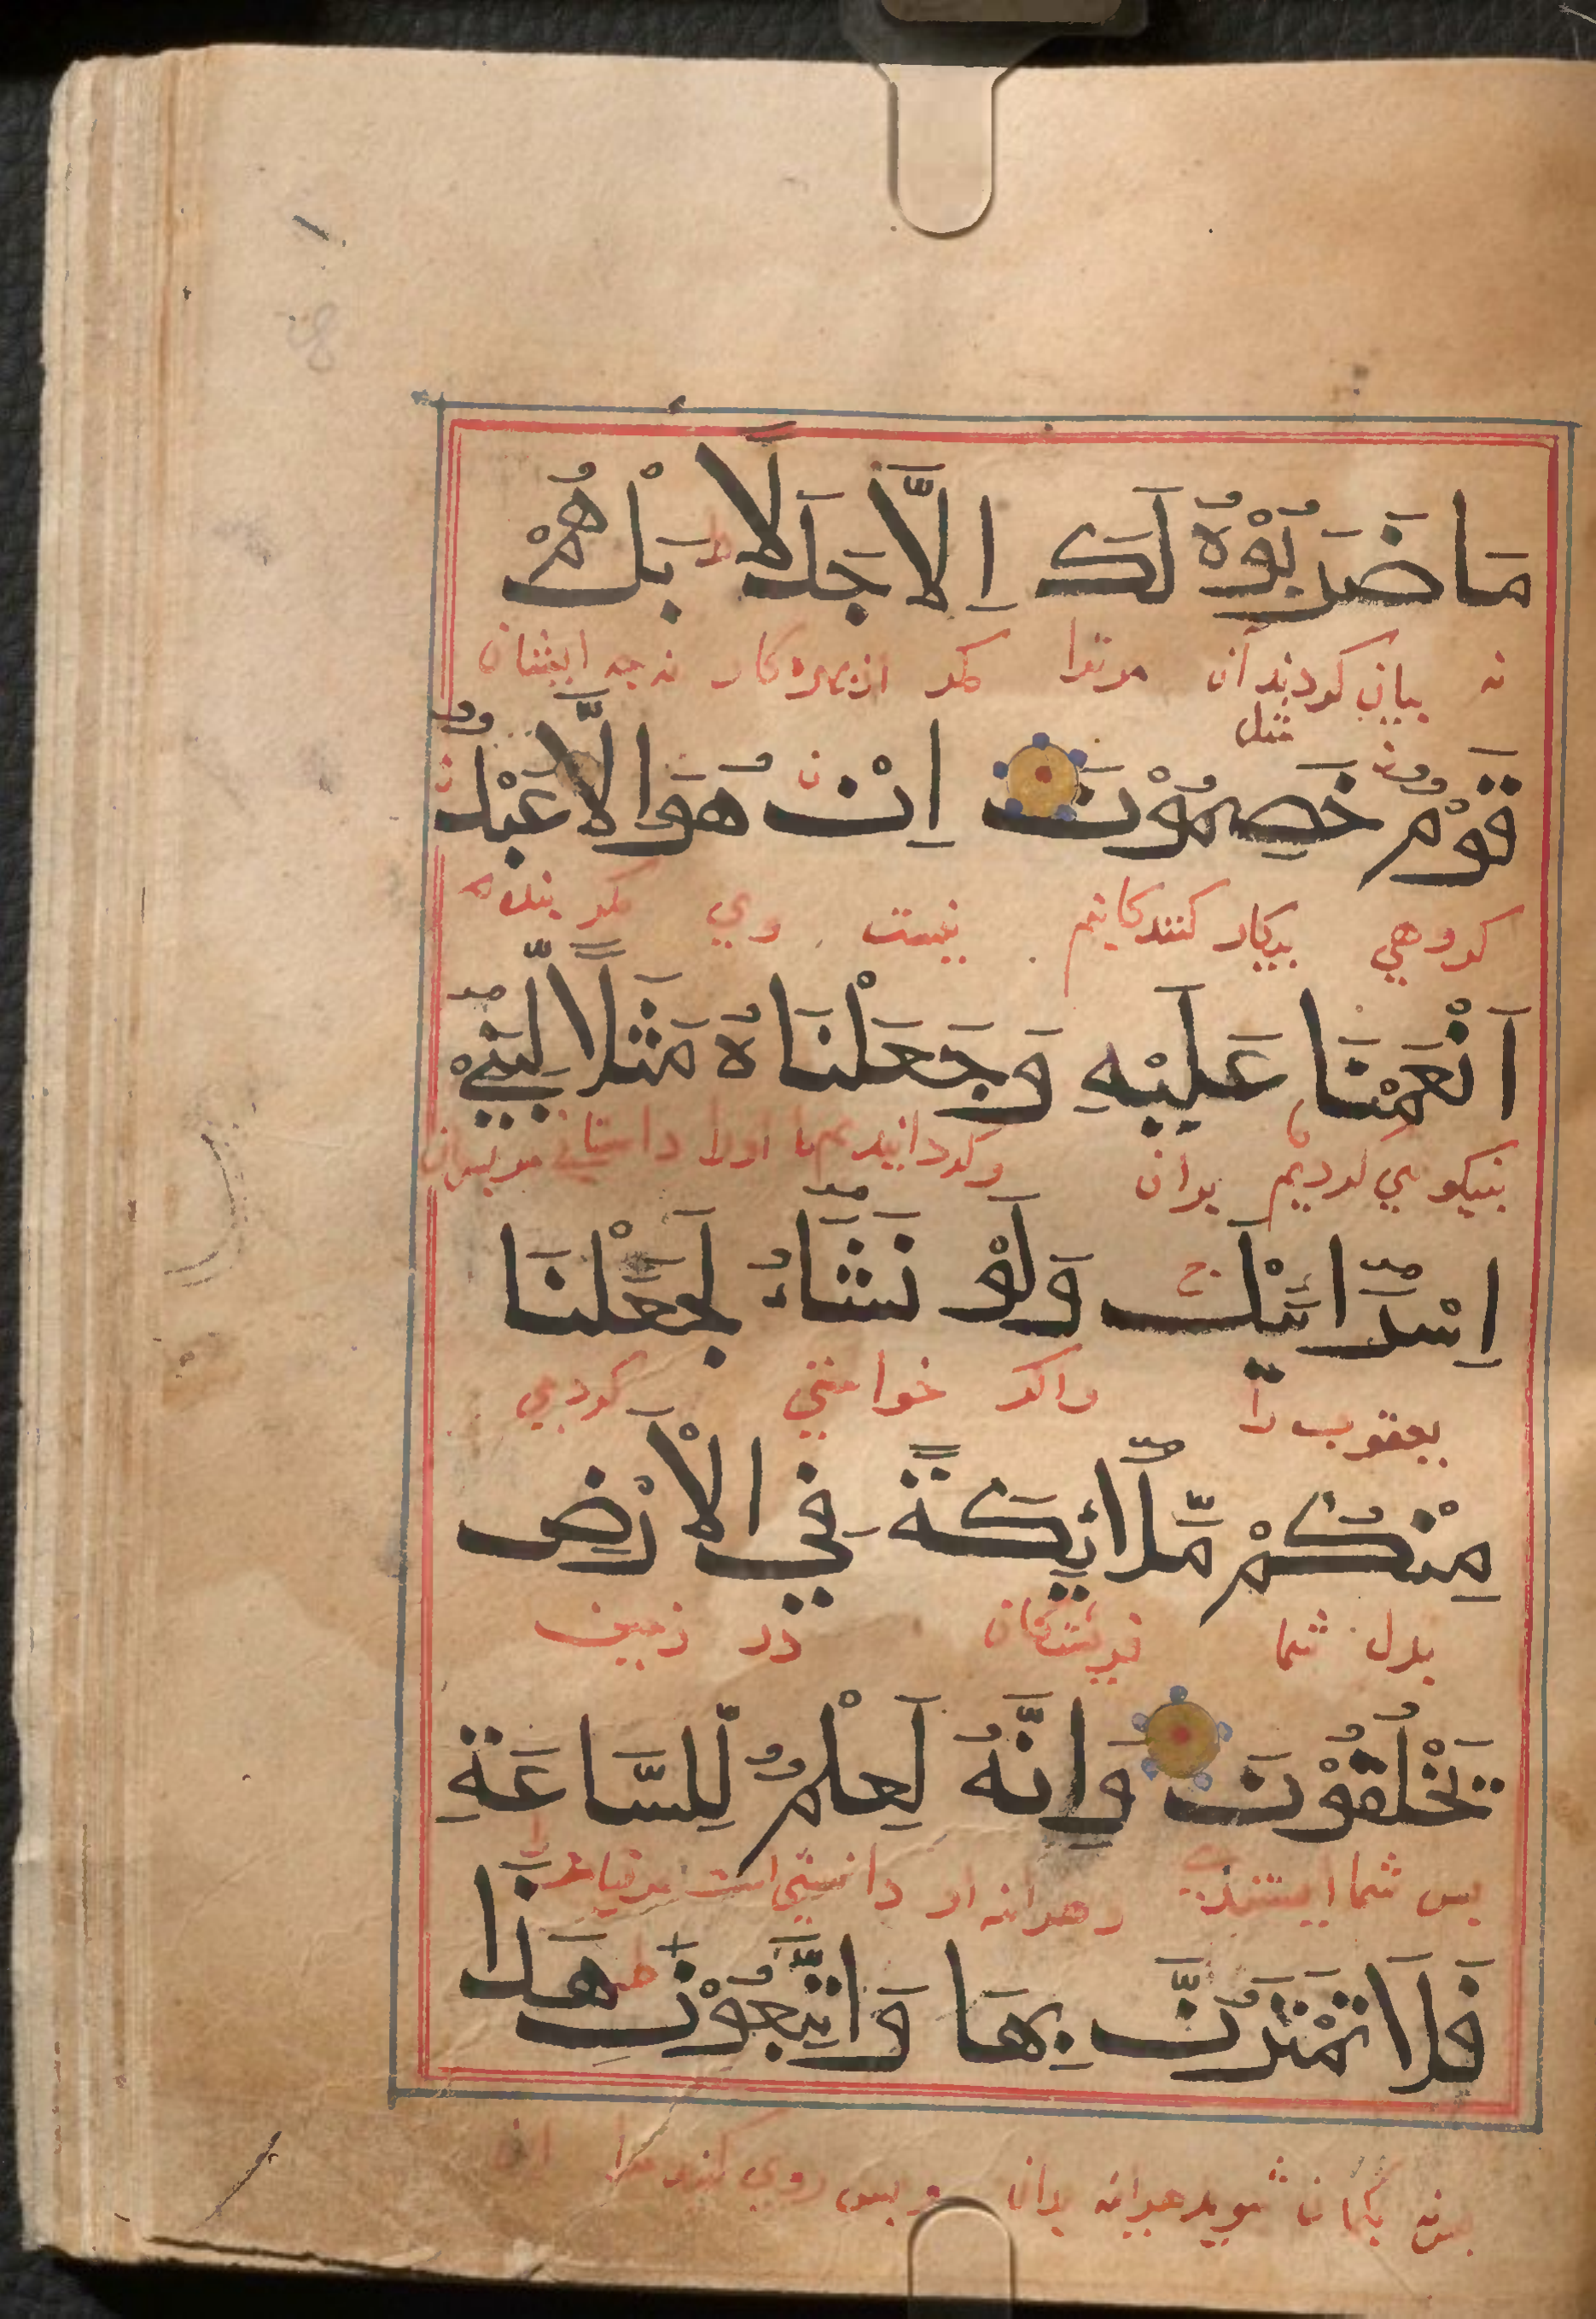 مَا ضَرَبُوْهُ لَكَ اِلَّا جَدَلًا بَلْ هُمْ
نه بيان كردند آن مثل مر ترا مكر از بهر بيكار نه جه ايشان
قَوْمٌ خَصِمُوْنَ اِنْ هُوَ اِلَّا عَبْدٌ
كروهي بيكار كنندكانيم نيست وي مكر بنده
اَنْعَمْنَا عَلَيْهِ وَجَعَلْنَاهُ مَثَلًا لِّبَنِيْ
نيكويي كرديم بدان وكردانيديم ما اورا داستاني مر بسران
اِسْرَائِيْلَ وَلَوْ نَشَاءُ لَجَعَلْنَا
يعقوب را واكر خواستي كردي
مِنْكُمْ مَّلَائِكَةً فِي الْاَرْضِ
بدل شما فريشتكان در زمين
يَخْلُفُوْنَ وَاِنَّهُ لَعِلْمٌ لِّلسَّاعَةِ
بس شما ايستندي وهرانه او دانستني است مر قيامت را
فَلَا تَمْتَرُنَّ بِهَا وَاتَّبِعُوْنِ هَذَا
كمان شويد هرانه بدان و بس روي كنيد مرا اين